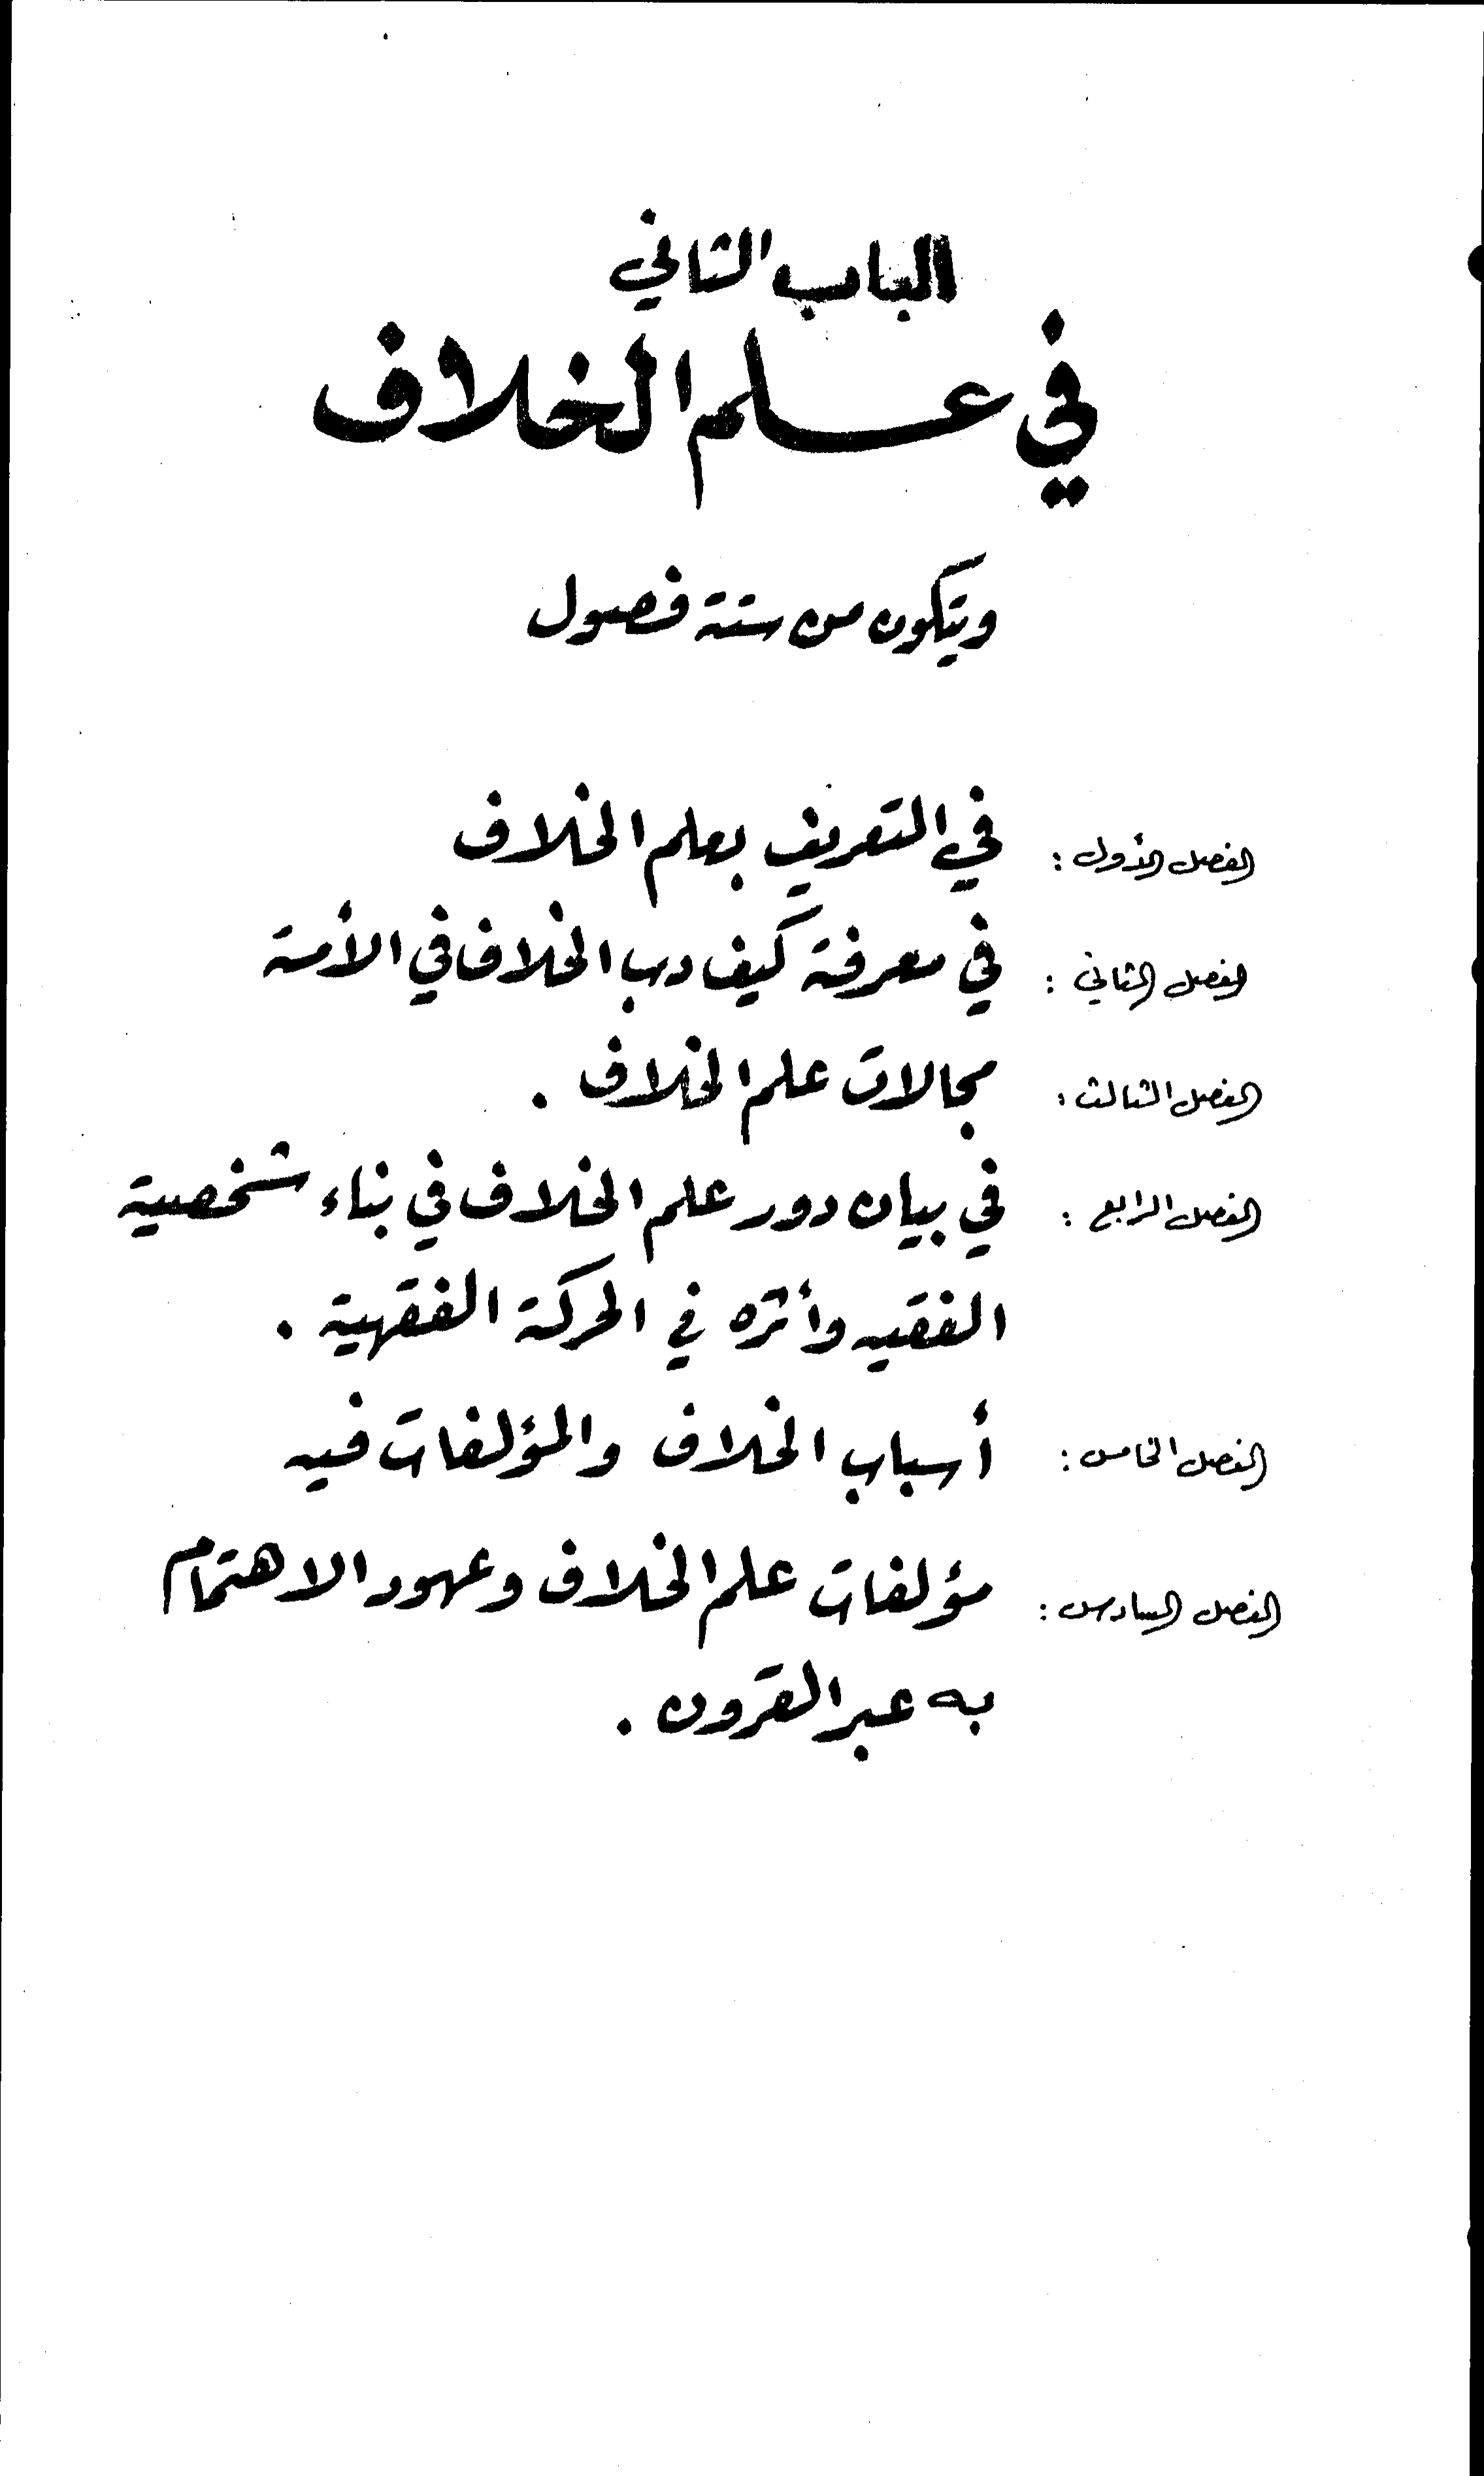 الباب الثاني
في علم الخلاف
ويتكون من ستة فصول
الفصل الأول : في التعريف بعلم الخلاف
الفصل الثاني : في معرفة كيف دب الخلاف في الأمة
الفصل الثالث : مجالات علم الخلاف .
الفصل الرابع : في بيان دور علم الخلاف في بناء شخصية
الفقيه وأثره في الحركة الفقهية .
الفصل الخامس : أسباب الخلاف والمؤلفات فيه
الفصل السادس : مؤلفات علم الخلاف وعهود الاهتمام
به عبر القرون .